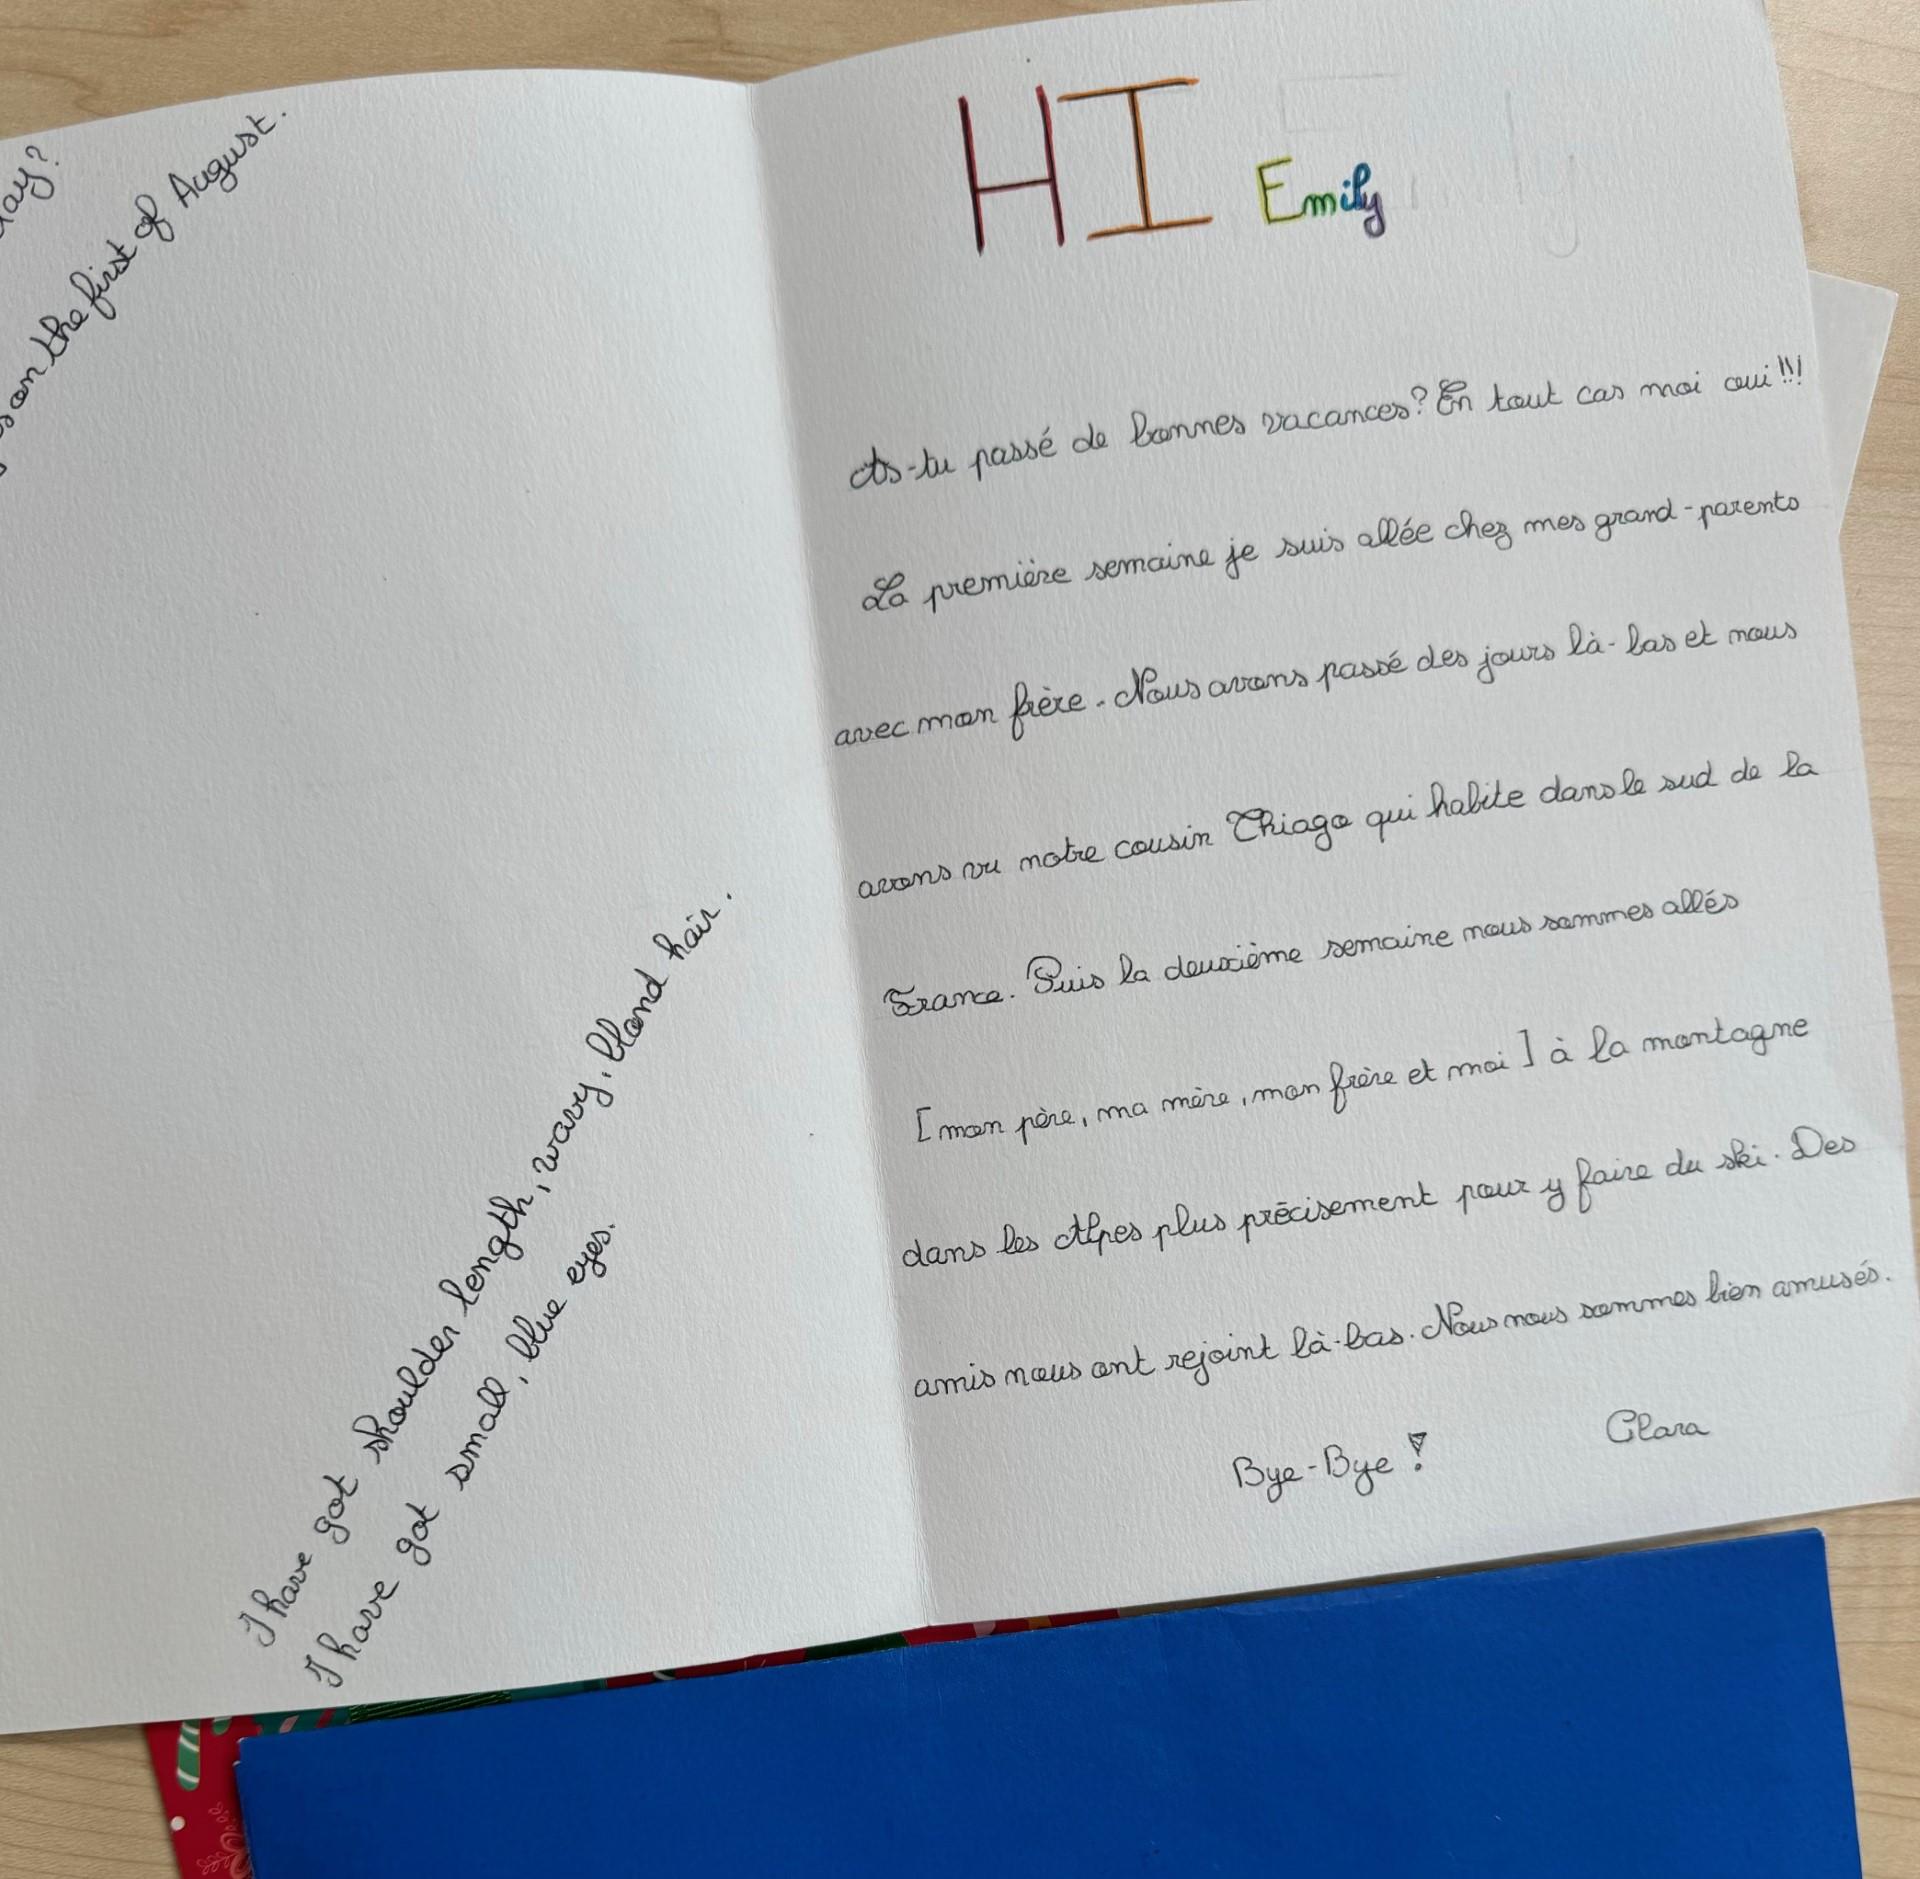 day?
on the first of August.
I have got shoulder length, wavy, blond hair.
I have got small, blue eyes.
HI Emily
As-tu passé de bonnes vacances? En tout cas moi oui!!!
La première semaine je suis allée chez mes grand-parents
avec mon frère. Nous avons passé des jours là-bas et nous
avons vu notre cousin Thiago qui habite dans le sud de la
France. Puis la deuxième semaine nous sommes allés
[mon père, ma mère, mon frère et moi] à la montagne
dans les Alpes plus précisement pour y faire du ski. Des
amis nous ont rejoint là-bas. Nous nous sommes bien amusés.
Bye-Bye! Clara